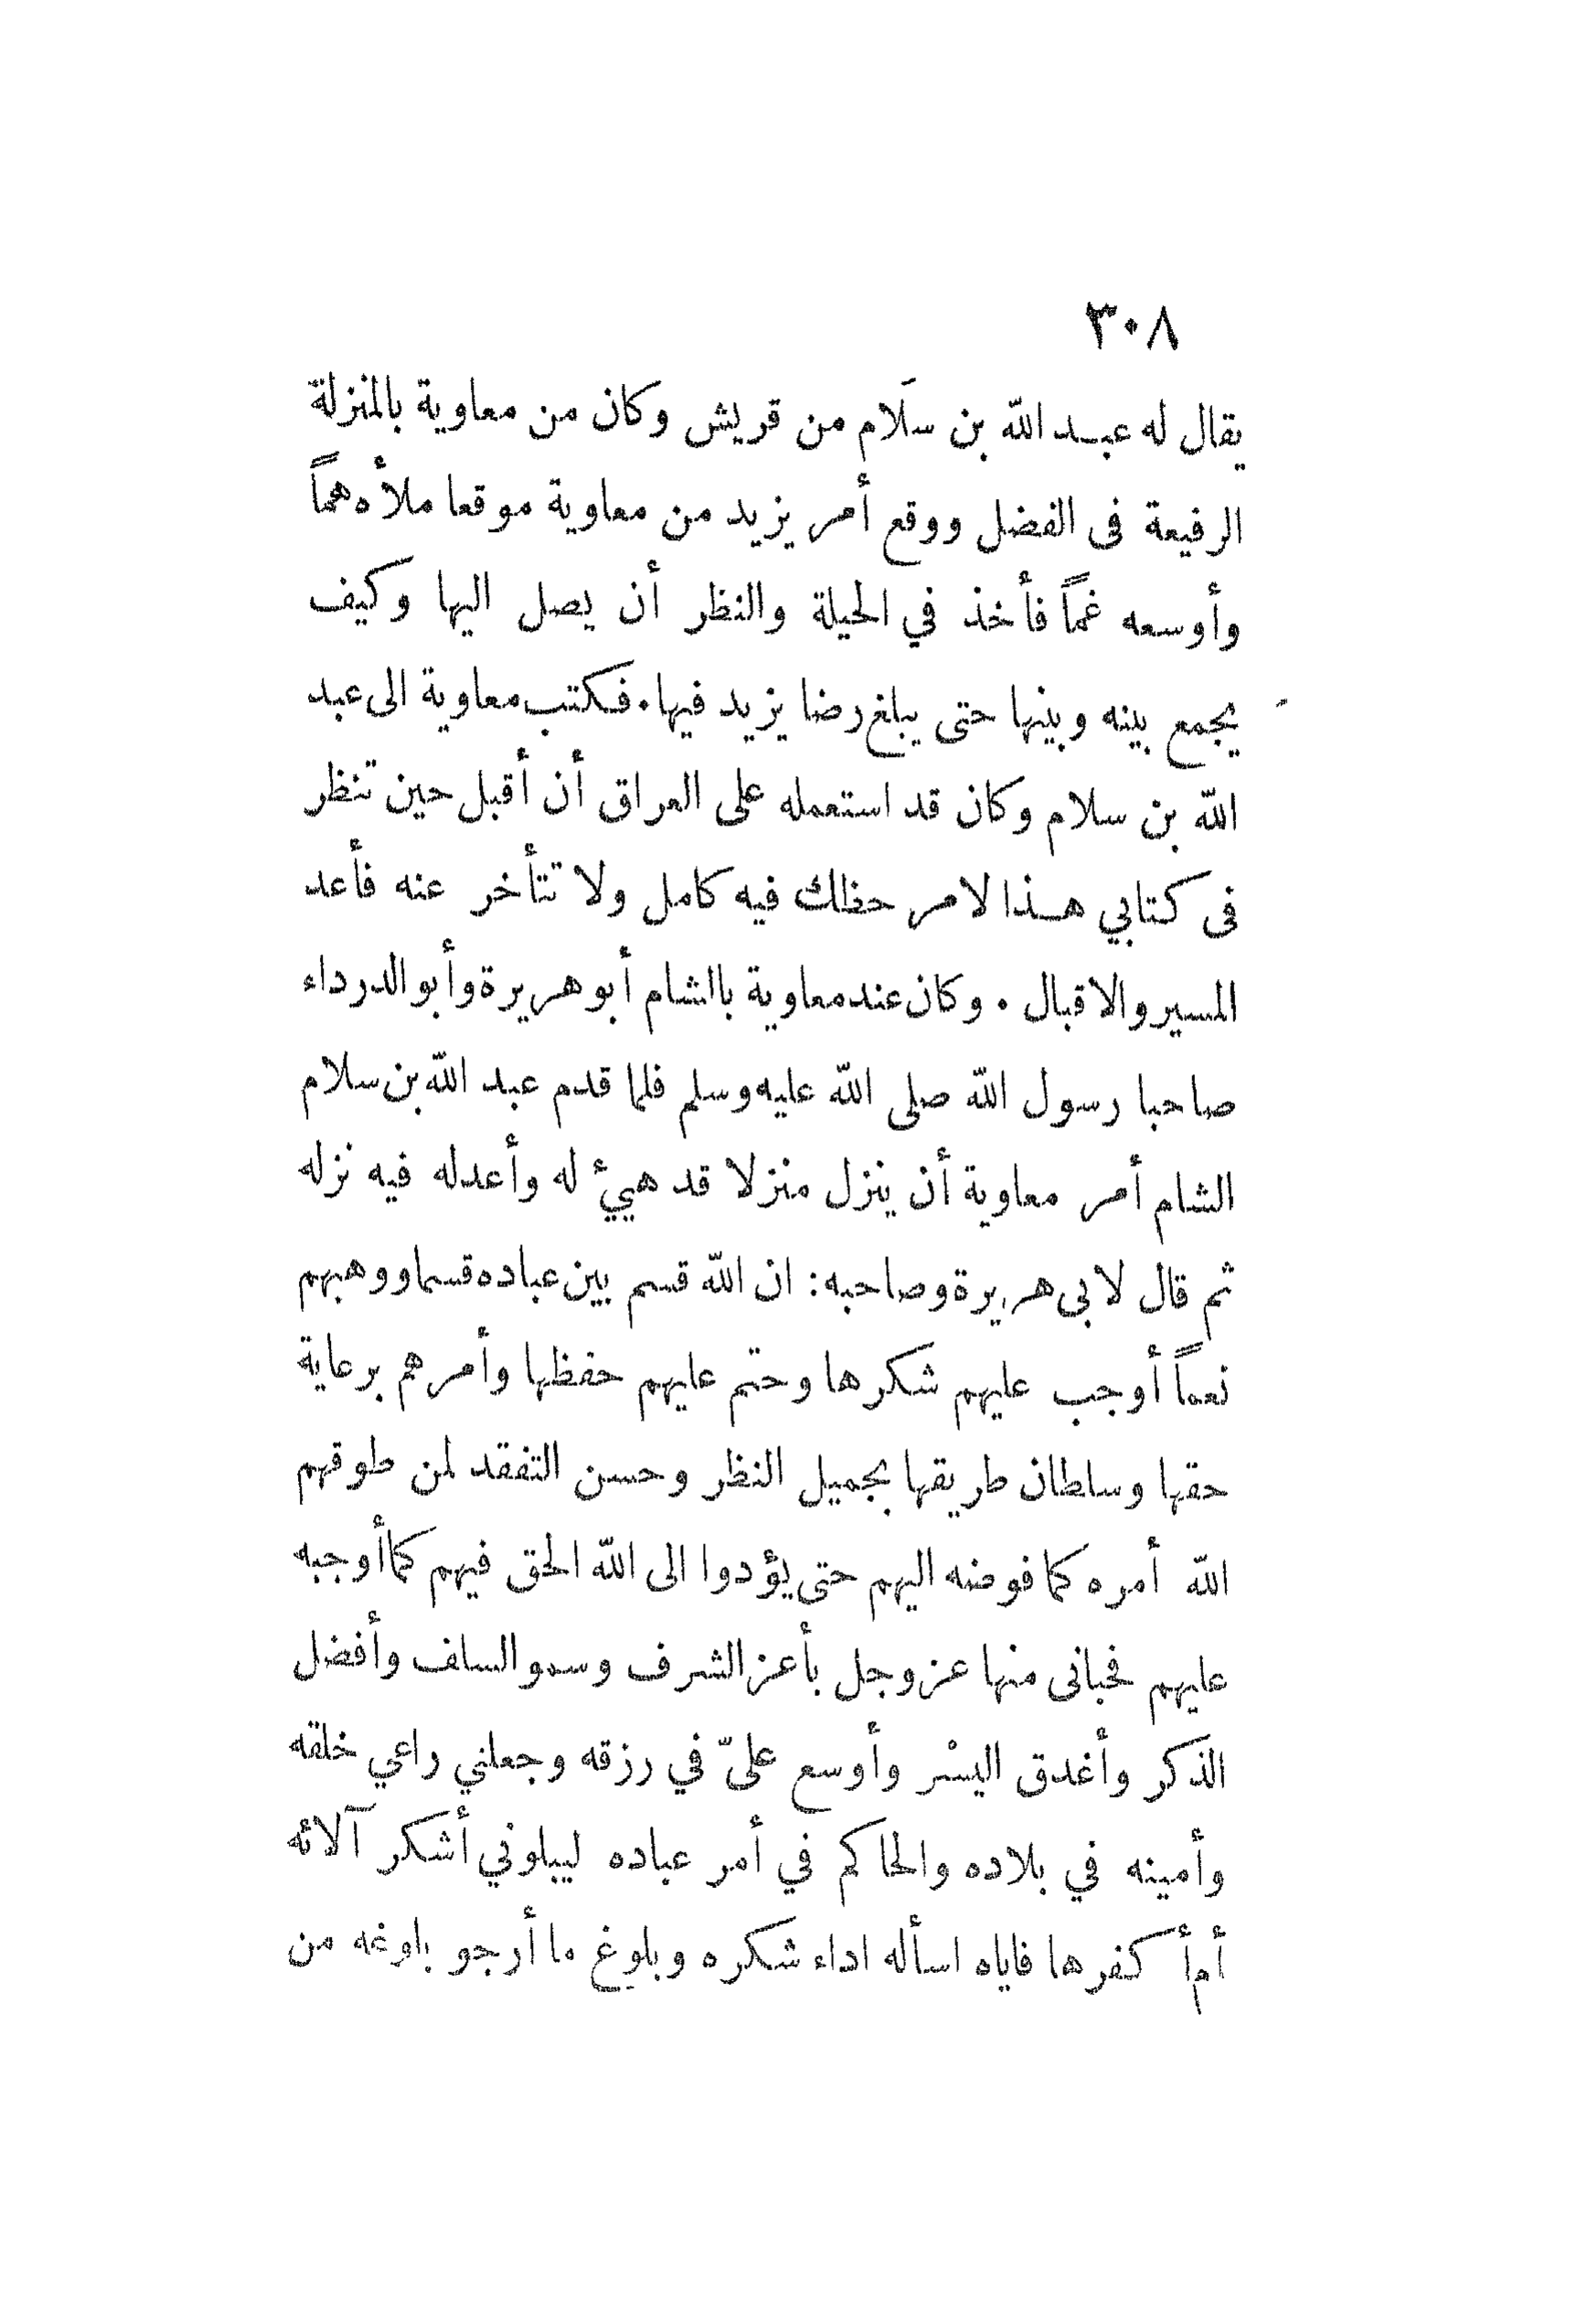 ٣٠٨
يقال له عبد الله بن سَلَام من قريش وكان من معاوية بالمنزلة
الرفيعة فى الفضل ووقع أمر يزيد من معاوية موقعا ملأه هماً
وأوسعه غماً فأخذ في الحيلة والنظر أن يصل اليها وكيف
يجمع بينه وبينها حتى يبلغ رضا يزيد فيها. فكتب معاوية الى عبد
الله بن سلام وكان قد استعمله على العراق أن أقبل حين تنظر
فى كتابي هذا لامر حظك فيه كامل ولا تتأخر عنه فأعد
المسير والاقبال . وكان عند معاوية باالشام أبو هريرة وأبو الدرداء
صاحبا رسول الله صلى الله عليه وسلم فلما قدم عبد الله بن سلام
الشام أمر معاوية أن ينزل منزلا قد هيئ له وأعد له فيه نزله
ثم قال لابى هريرة وصاحبه: ان الله قسم بين عباده قسما ووهبهم
نعماً أوجب عليهم شكرها وحتم عليهم حفظها وأمرهم برعاية
حقها وسلطان طريقها بجميل النظر وحسن التفقد لمن طوقهم
الله أمره كما فوضه اليهم حتى يؤدوا الى الله الحق فيهم كما أوجبه
عليهم فحبانى منها عز وجل بأعز الشرف وسمو السلف وأفضل
الذكر وأغدق اليسْر وأوسع علىّ في رزقه وجعلني راعي خلقه
وأمينه في بلاده والحاكم في أمر عباده ليبلوني أشكر آلائه
أم أكفرها فاياه اسأله اداء شكره وبلوغ ما أرجو بلوغه من